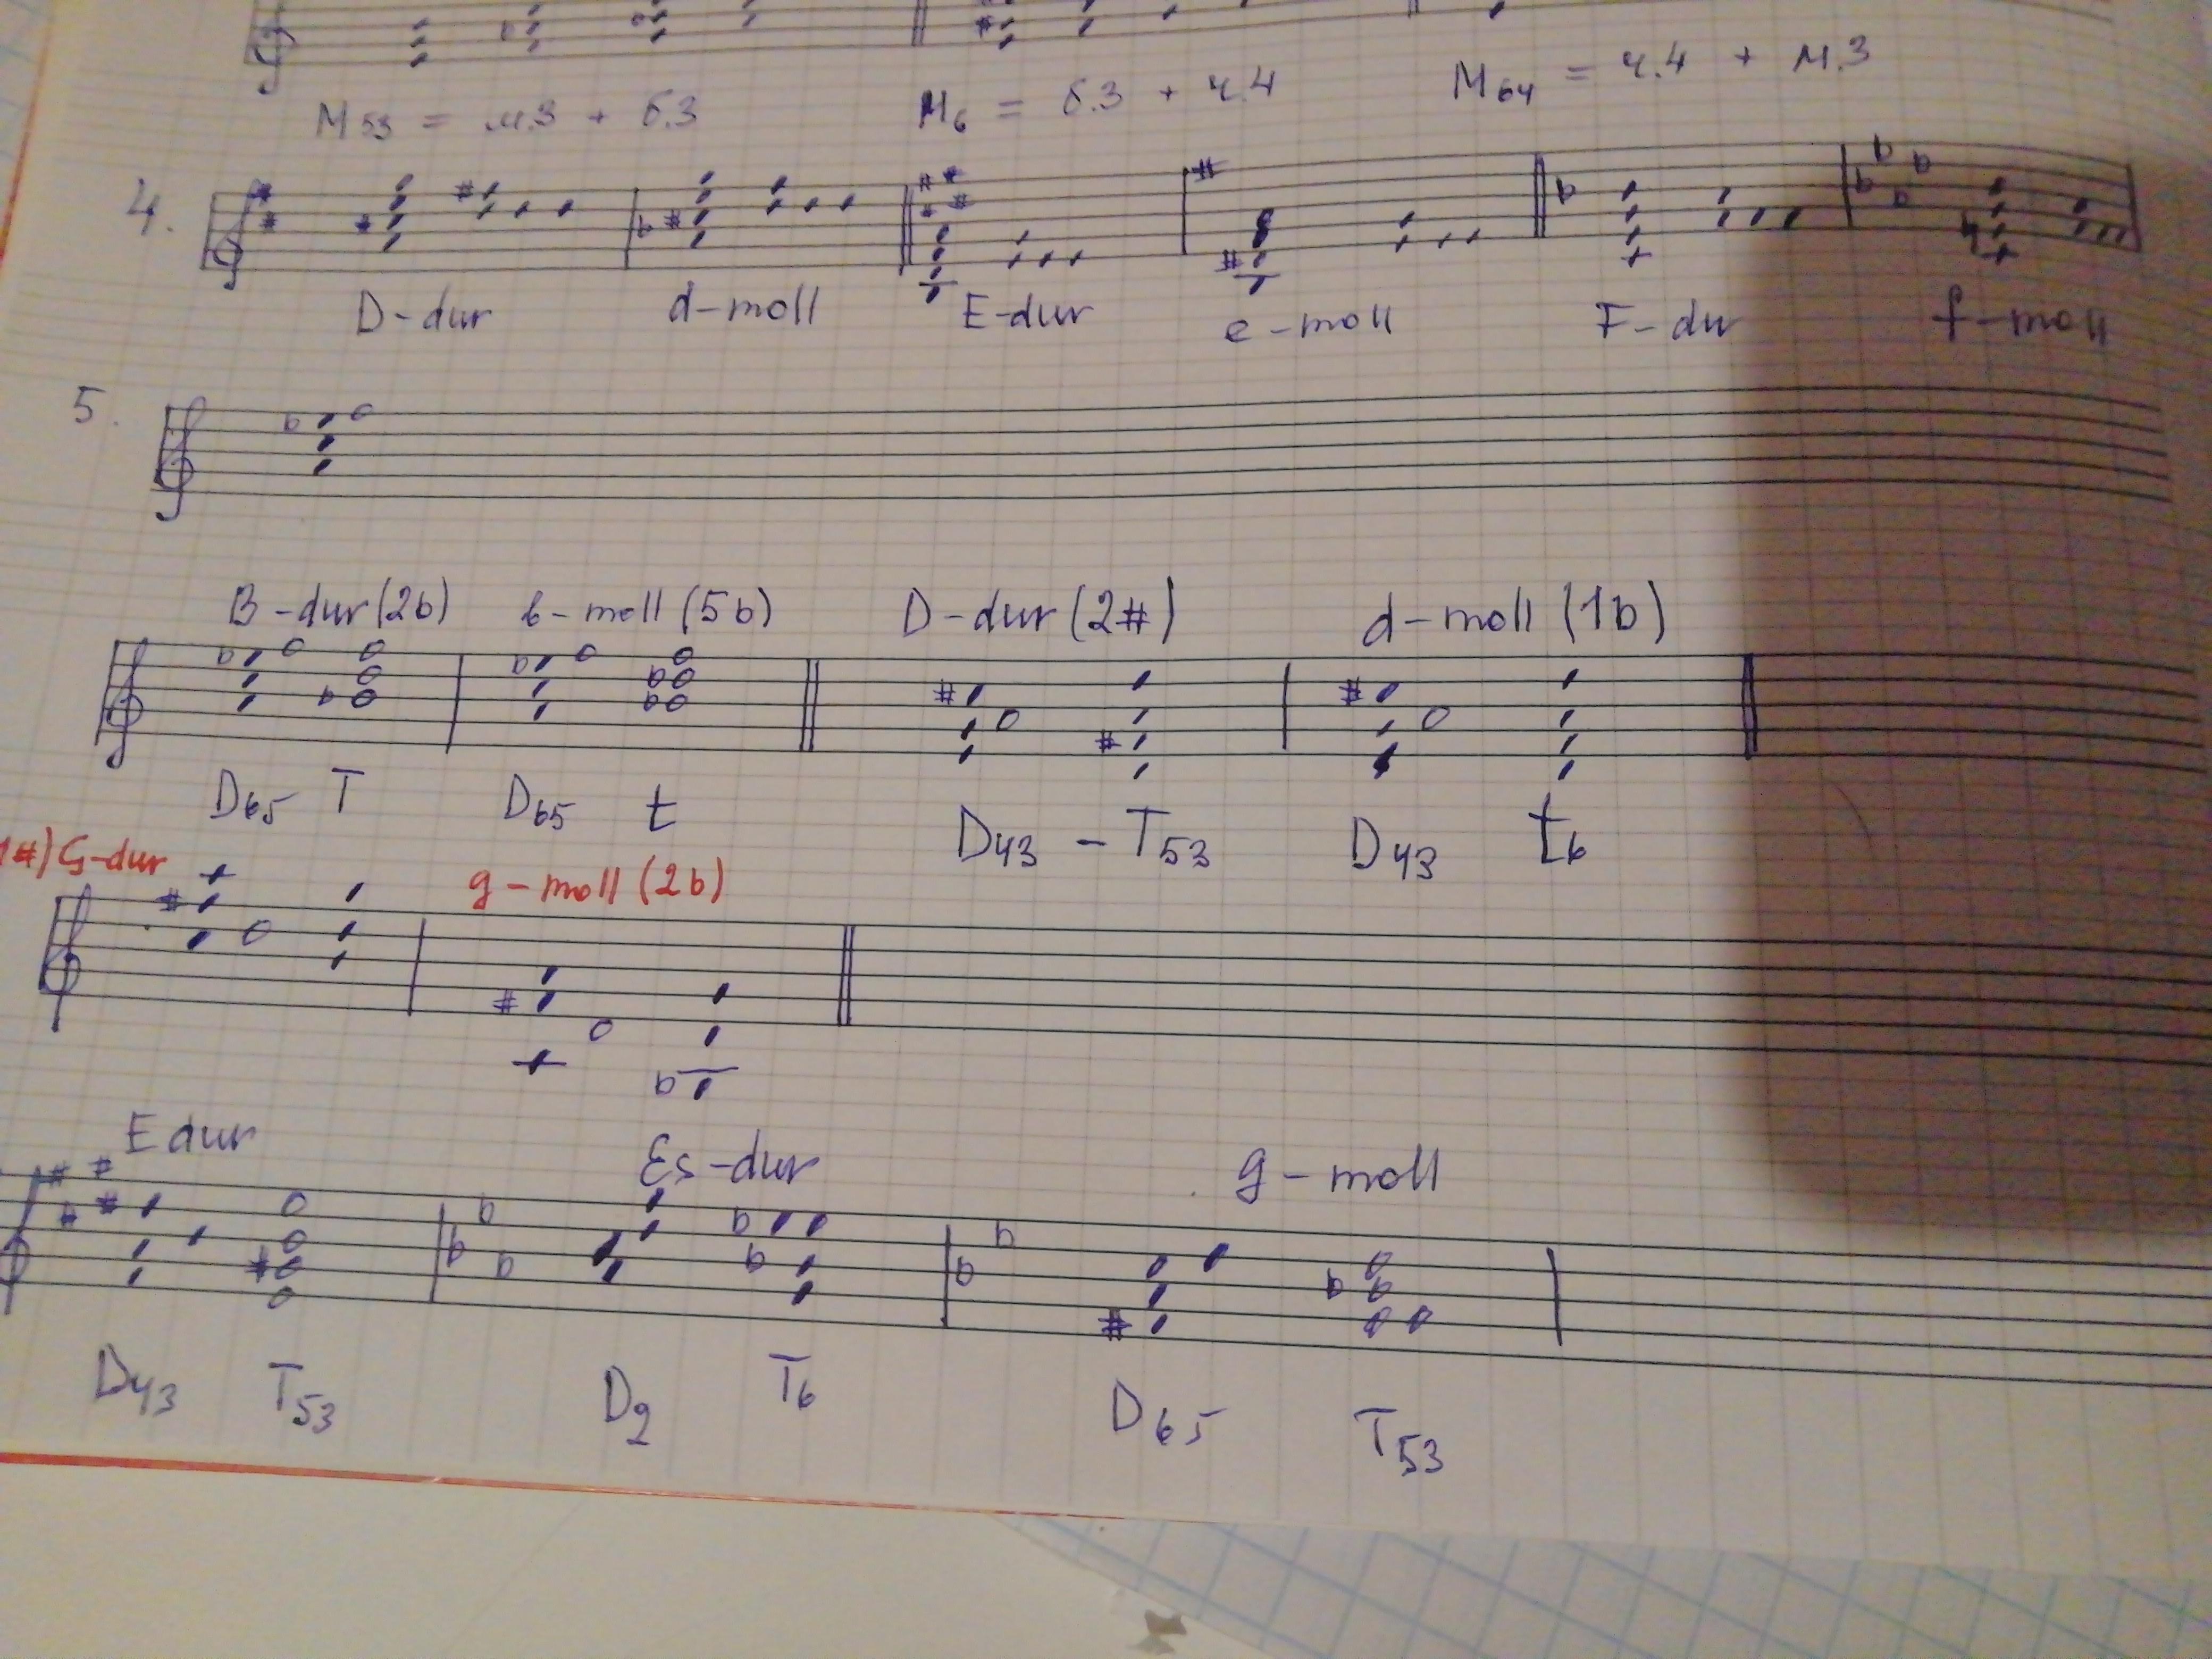 М53 = м.3 + б.3 М6 = б.3 + ч.4 М64 = ч.4 + м.3
4.
D-dur d-moll E-dur e-moll F-dur f-moll
5.
B-dur (2b) b-moll (5b) D-dur (2#) d-moll (1b)
D65 T D65 t D43 - T53 D43 t6
1#) G-dur g-moll (2b)
E dur Es-dur g-moll
D43 T53 D2 T6 D65 T53